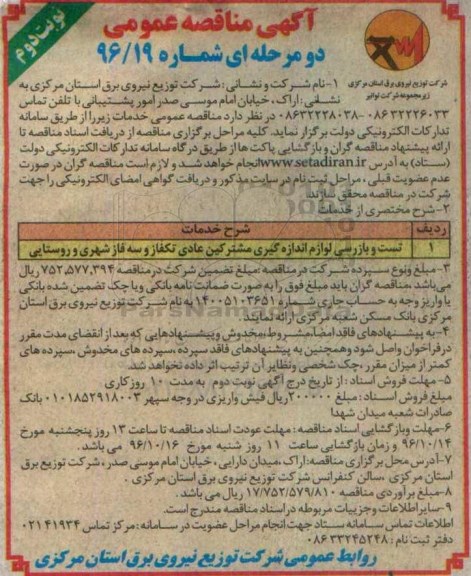 نوبت دوم
آگهی مناقصه عمومی
دو مرحله ای شماره ۹۶/۱۹
شرکت توزیع نیروی برق استان مرکزی
زیرمجموعه شرکت توانیر
۱-نام شرکت و نشانی : شرکت توزیع نیروی برق استان مرکزی به
نشانی : اراک ، خیابان امام موسی صدر امور پشتیبانی با تلفن تماس
۰۸۶۳۲۲۲۶۰۳۳-۰۸۶۳۲۲۲۸۰۳۸ در نظر دارد مناقصه عمومی خدمات زیر را از طریق سامانه
تدارکات الکترونیکی دولت برگزار نماید. کلیه مراحل برگزاری مناقصه از دریافت اسناد مناقصه تا
ارائه پیشنهاد مناقصه گران و بازگشایی پاکت ها از طریق درگاه سامانه تدارکات الکترونیکی دولت
(ستاد) به آدرس www.setadiran.ir انجام خواهد شد و لازم است مناقصه گران در صورت
عدم عضویت قبلی ، مراحل ثبت نام در سایت مذکور و دریافت گواهی امضای الکترونیکی را جهت
شرکت در مناقصه محقق سازند.
۲-شرح مختصری از خدمات
ردیف شرح خدمات
۱ تست و بازرسی لوازم اندازه گیری مشترکین عادی تکفاز و سه فاز شهری و روستایی
۳-مبلغ ونوع سپرده شرکت در مناقصه :مبلغ تضمین شرکت در مناقصه ۷۵۲،۵۷۷،۳۹۴ ریال
می باشد .مناقصه گران باید مبلغ فوق را به صورت ضمانت نامه بانکی و یا چک تضمین شده بانکی
یا واریز وجه به حساب جاری شماره ۱۴۰۰۵۱۰۳۶۵۱ به نام شرکت توزیع نیروی برق استان
مرکزی بانک مسکن شعبه مرکزی ارائه نمایند.
۴-به پیشنهادهای فاقد امضا،مشروط،مخدوش و پیشنهادهایی که بعد از انقضای مدت مقرر
در فراخوان واصل شود وهمچنین به پیشنهادهای فاقد سپرده ،سپرده های مخدوش ،سپرده های
کمتر از میزان مقرر ،چک شخصی ونظایر آن ترتیب اثر داده نخواهد شد.
۵-مهلت فروش اسناد : از تاریخ درج آگهی نوبت دوم به مدت ۱۰ روز کاری
مبلغ فروش اسناد : مبلغ ۲۰۰۰۰۰ ریال فیش واریزی در وجه سپهر ۰۱۰۱۸۵۲۹۱۸۰۰۳ بانک
صادرات شعبه میدان شهدا
۶-مهلت وبازگشایی اسناد مناقصه : مهلت عودت اسناد مناقصه تا ساعت ۱۳ روز پنجشنبه مورخ
۹۶/۱۰/۱۴ و زمان بازگشایی ساعت ۱۱ روز شنبه مورخ ۹۶/۱۰/۱۶ می باشد .
۷-آدرس محل برگزاری مناقصه: اراک ،میدان دارایی ، خیابان امام موسی صدر ، شرکت توزیع برق
استان مرکزی ،سالن کنفرانس شرکت توزیع نیروی برق استان مرکزی .
۸-مبلغ برآوردی مناقصه ۱۷/۷۵۲/۵۷۹/۸۱۰ ریال می باشد .
۹-سایر اطلاعات وجزییات مربوطه در اسناد مناقصه مندرج است.
اطلاعات تماس سامانه ستاد جهت انجام مراحل عضویت در سامانه : مرکز تماس ۴۱۹۳۴ ۰۲۱
دفتر ثبت نام : ۳۳۲۴۵۲۴۸ ۰۸۶
روابط عمومی شرکت توزیع نیروی برق استان مرکزی